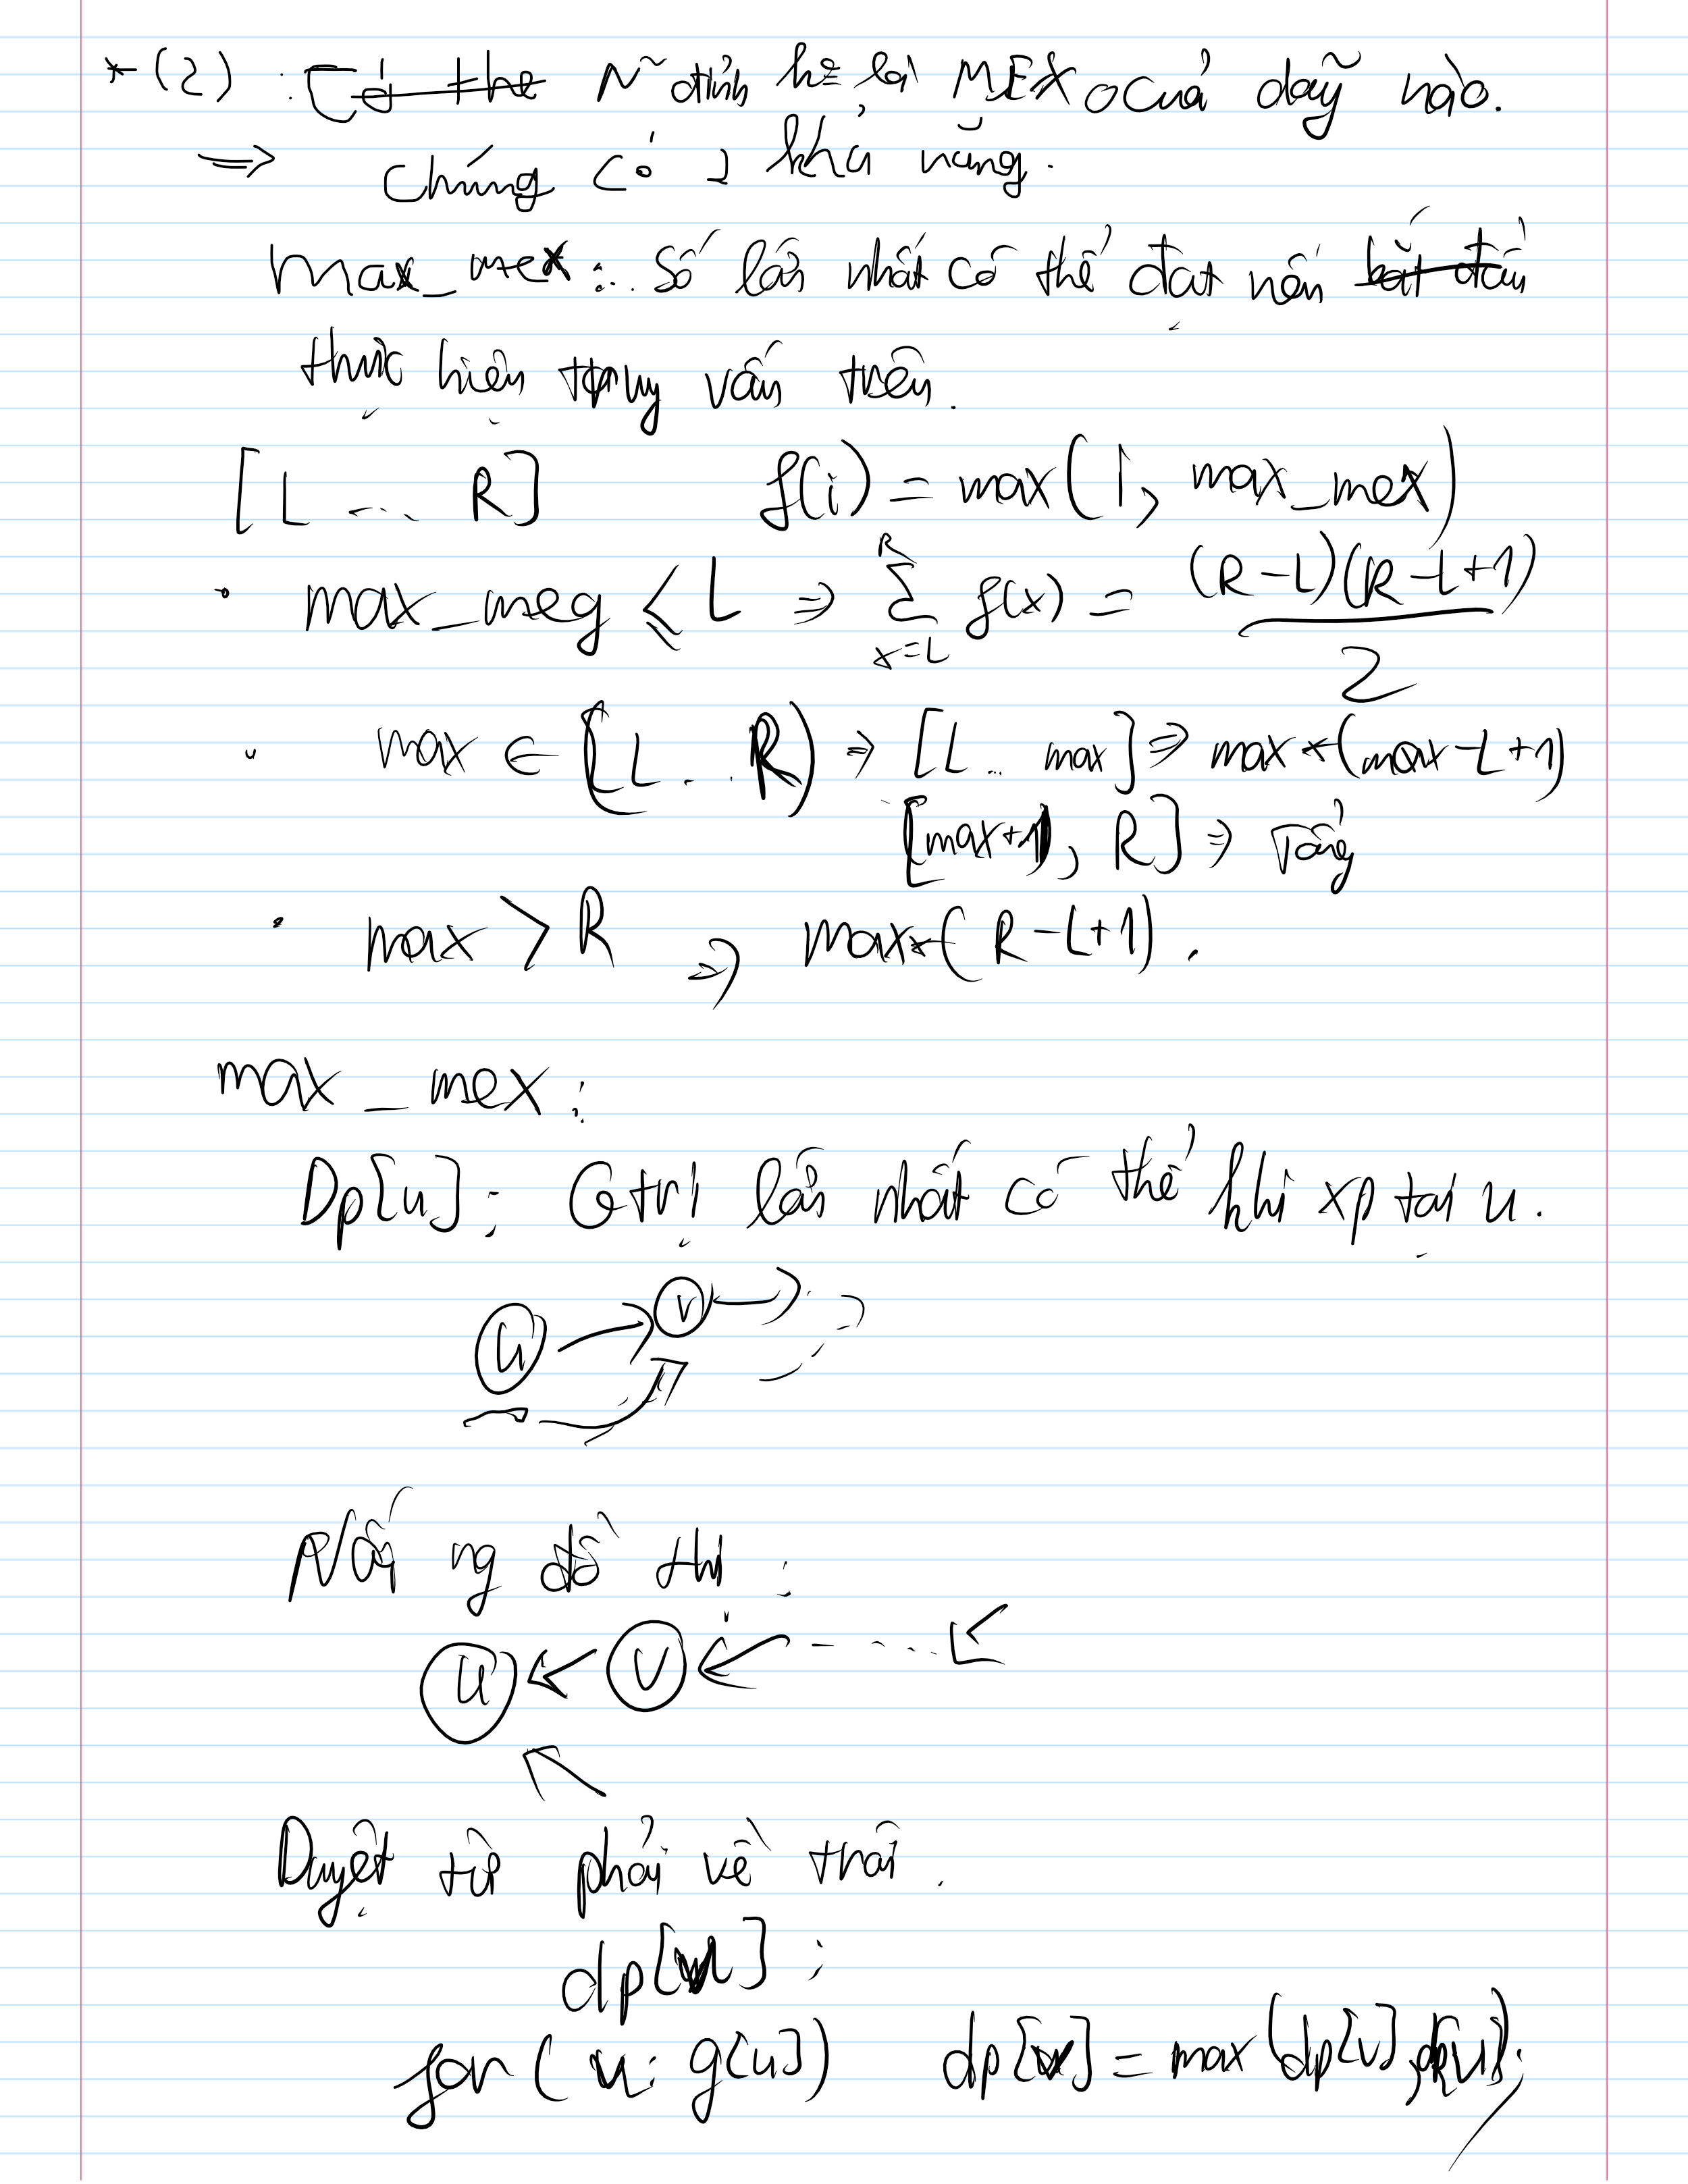 * (2) : Có thể N đỉnh kề là MEX của dãy nào.
=> Chúng có khả năng.
max_mex : Số lớn nhất có thể đạt nến bắt đầu
thực hiện truy vấn trên.
[L ... R] f(i) = max(i, max_mex)
• max_meg ⩽ L => ∑_{x=L}^{R} f(x) = (R-L)(R-L+1) / 2
• max ∈ [L .. R) => [L .. max] => max * (max-L+1)
[max+1, R] => Tổng
• max > R => max * (R-L+1).
max_mex :
Dp[u] : Gtrị lớn nhất có thể khi xp tại u.
u v
ng đồ thị :
u v
Duyệt từ phải về trái.
dp[u] :
for( v : g[u]) dp[u] = max(dp[v], dp[u]);